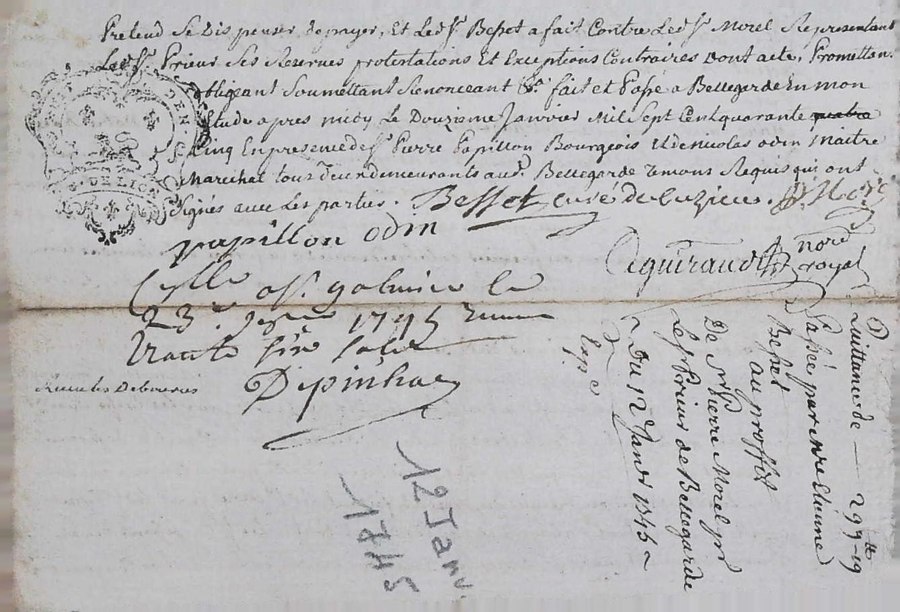 Pretend Se Dispenser de payer, Et Led. Sr. Bessot a fait Contre Led. Sr. Morel Representant
Led. Sr. Prieur Ses Reserves protestations Et Exceptions Contraires Dont acte, Promettan.
obligeant Soumettant Renonceant fait et Passé a Bellegarde En mon
Etude apres midy Le Douzieme Janvier Mil Sept Cent quarante quatre
Cinq En presence de Sr. Pierre Papillon Bourgeois Et de nicolas odin Maitre
Marechal tous deux demeurants aud. Bellegarde temoins Requis qui ont
Signés avec Les parties. Bessot curé de
papillon odin
guiraudet nore
royal
a St. galmier le
23e 1745
trante six sols
Depinhac
DE LION
Quittance de — 299-19
Passée par entre Etienne
Bessot
au proffit
De Sr. pierre Morel pr.
Le Prieur de Bellegarde
Du 12 Janvr 1745
12 Janv.
1745